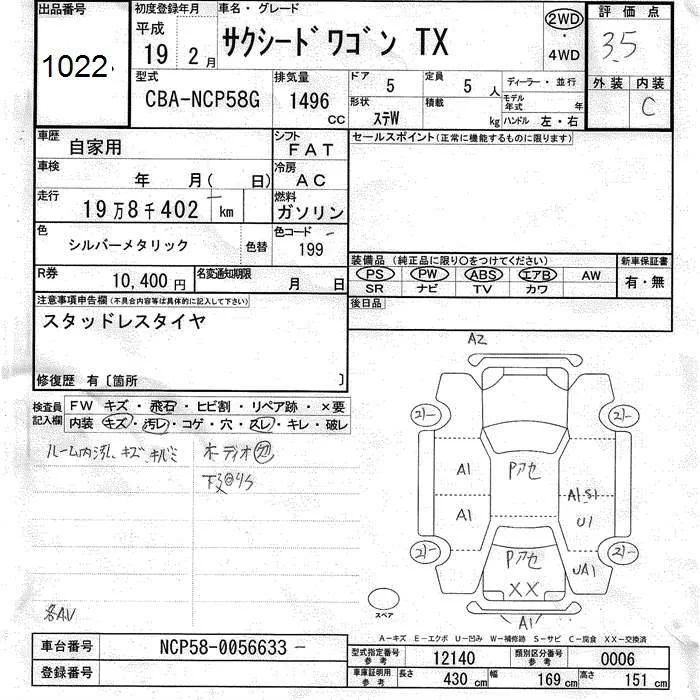 出品番号
1022
初度登録年月
平成
19 2月
車名・グレード
サクシードワゴン TX
2WD
・
4WD
評価点
3.5
外装 内装
C
型式
CBA-NCP58G
排気量
1496
CC
ドア
5
定員
5 人
ディーラー・並行
形状
ステW
積載
kg
モデル年式
年
ハンドル 左・右
車歴
自家用
シフト
FAT
セールスポイント(正常に機能するものに限ります)
車検
年 月( 日)
冷房
AC
走行
19万8千402 km
燃料
ガソリン
色
シルバーメタリック
色替
色コード
199
R券
10,400円
名変通知期限
月 日
装備品(純正品に限り○をつけてください)
新車保証書
PS PW ABS エアB AW
有・無
SR ナビ TV カワ
後日品
注意事項申告欄(不具合内容等は具体的に記入して下さい)
スタッドレスタイヤ
修復歴 有〔箇所 〕
検査員
記入欄
FW キズ・飛石・ヒビ割・リペア跡・×要
内装 キズ・汚レ・コゲ・穴・スレ・キレ・破レ
ルーム内汚、キズ、キバミ
各AV
A2
21-
21-
A1
Pアセ
A1S1
A1
U1
21-
21-
Pアセ
UA1
XX
A1
スペア
A-キズ E-エクボ U-凹み W-補修跡 S-サビ C-腐食 XX-交換済
車台番号
NCP58-0056633
登録番号
型式指定番号
参考
12140
類別区分番号
参考
0006
車庫証明用
参考
長さ
430 cm
幅
169 cm
高さ
151 cm